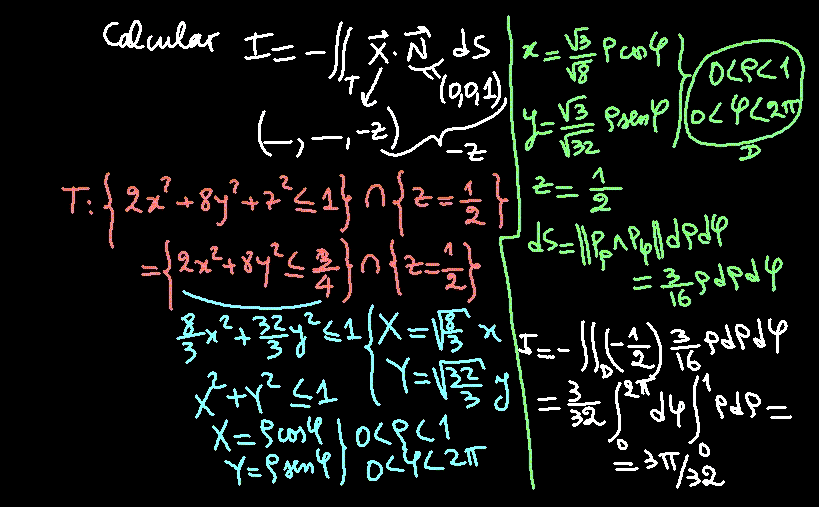 Calcular I = -∬_T X⃗ · N⃗ dS
(0,0,1)
(—, —, -z)
-z
T: {2x²+8y²+z² ≤ 1} ∩ {z = 1/2}
= {2x²+8y² ≤ 3/4} ∩ {z = 1/2}
8/3 x² + 32/3 y² ≤ 1 { X = √(8/3) x
Y = √(32/3) y
X² + Y² ≤ 1
X = ρ cos φ } 0 < ρ < 1
Y = ρ sen φ } 0 < φ < 2π
x = √3/√8 ρ cos φ } 0 < ρ < 1
y = √3/√32 ρ sen φ } 0 < φ < 2π
D
z = 1/2
dS = ||P_ρ ∧ P_φ|| dρ dφ
= 3/16 ρ dρ dφ
I = -∬_D (-1/2) 3/16 ρ dρ dφ
= 3/32 ∫₀^{2π} dφ ∫₀^1 ρ dρ =
= 3π/32